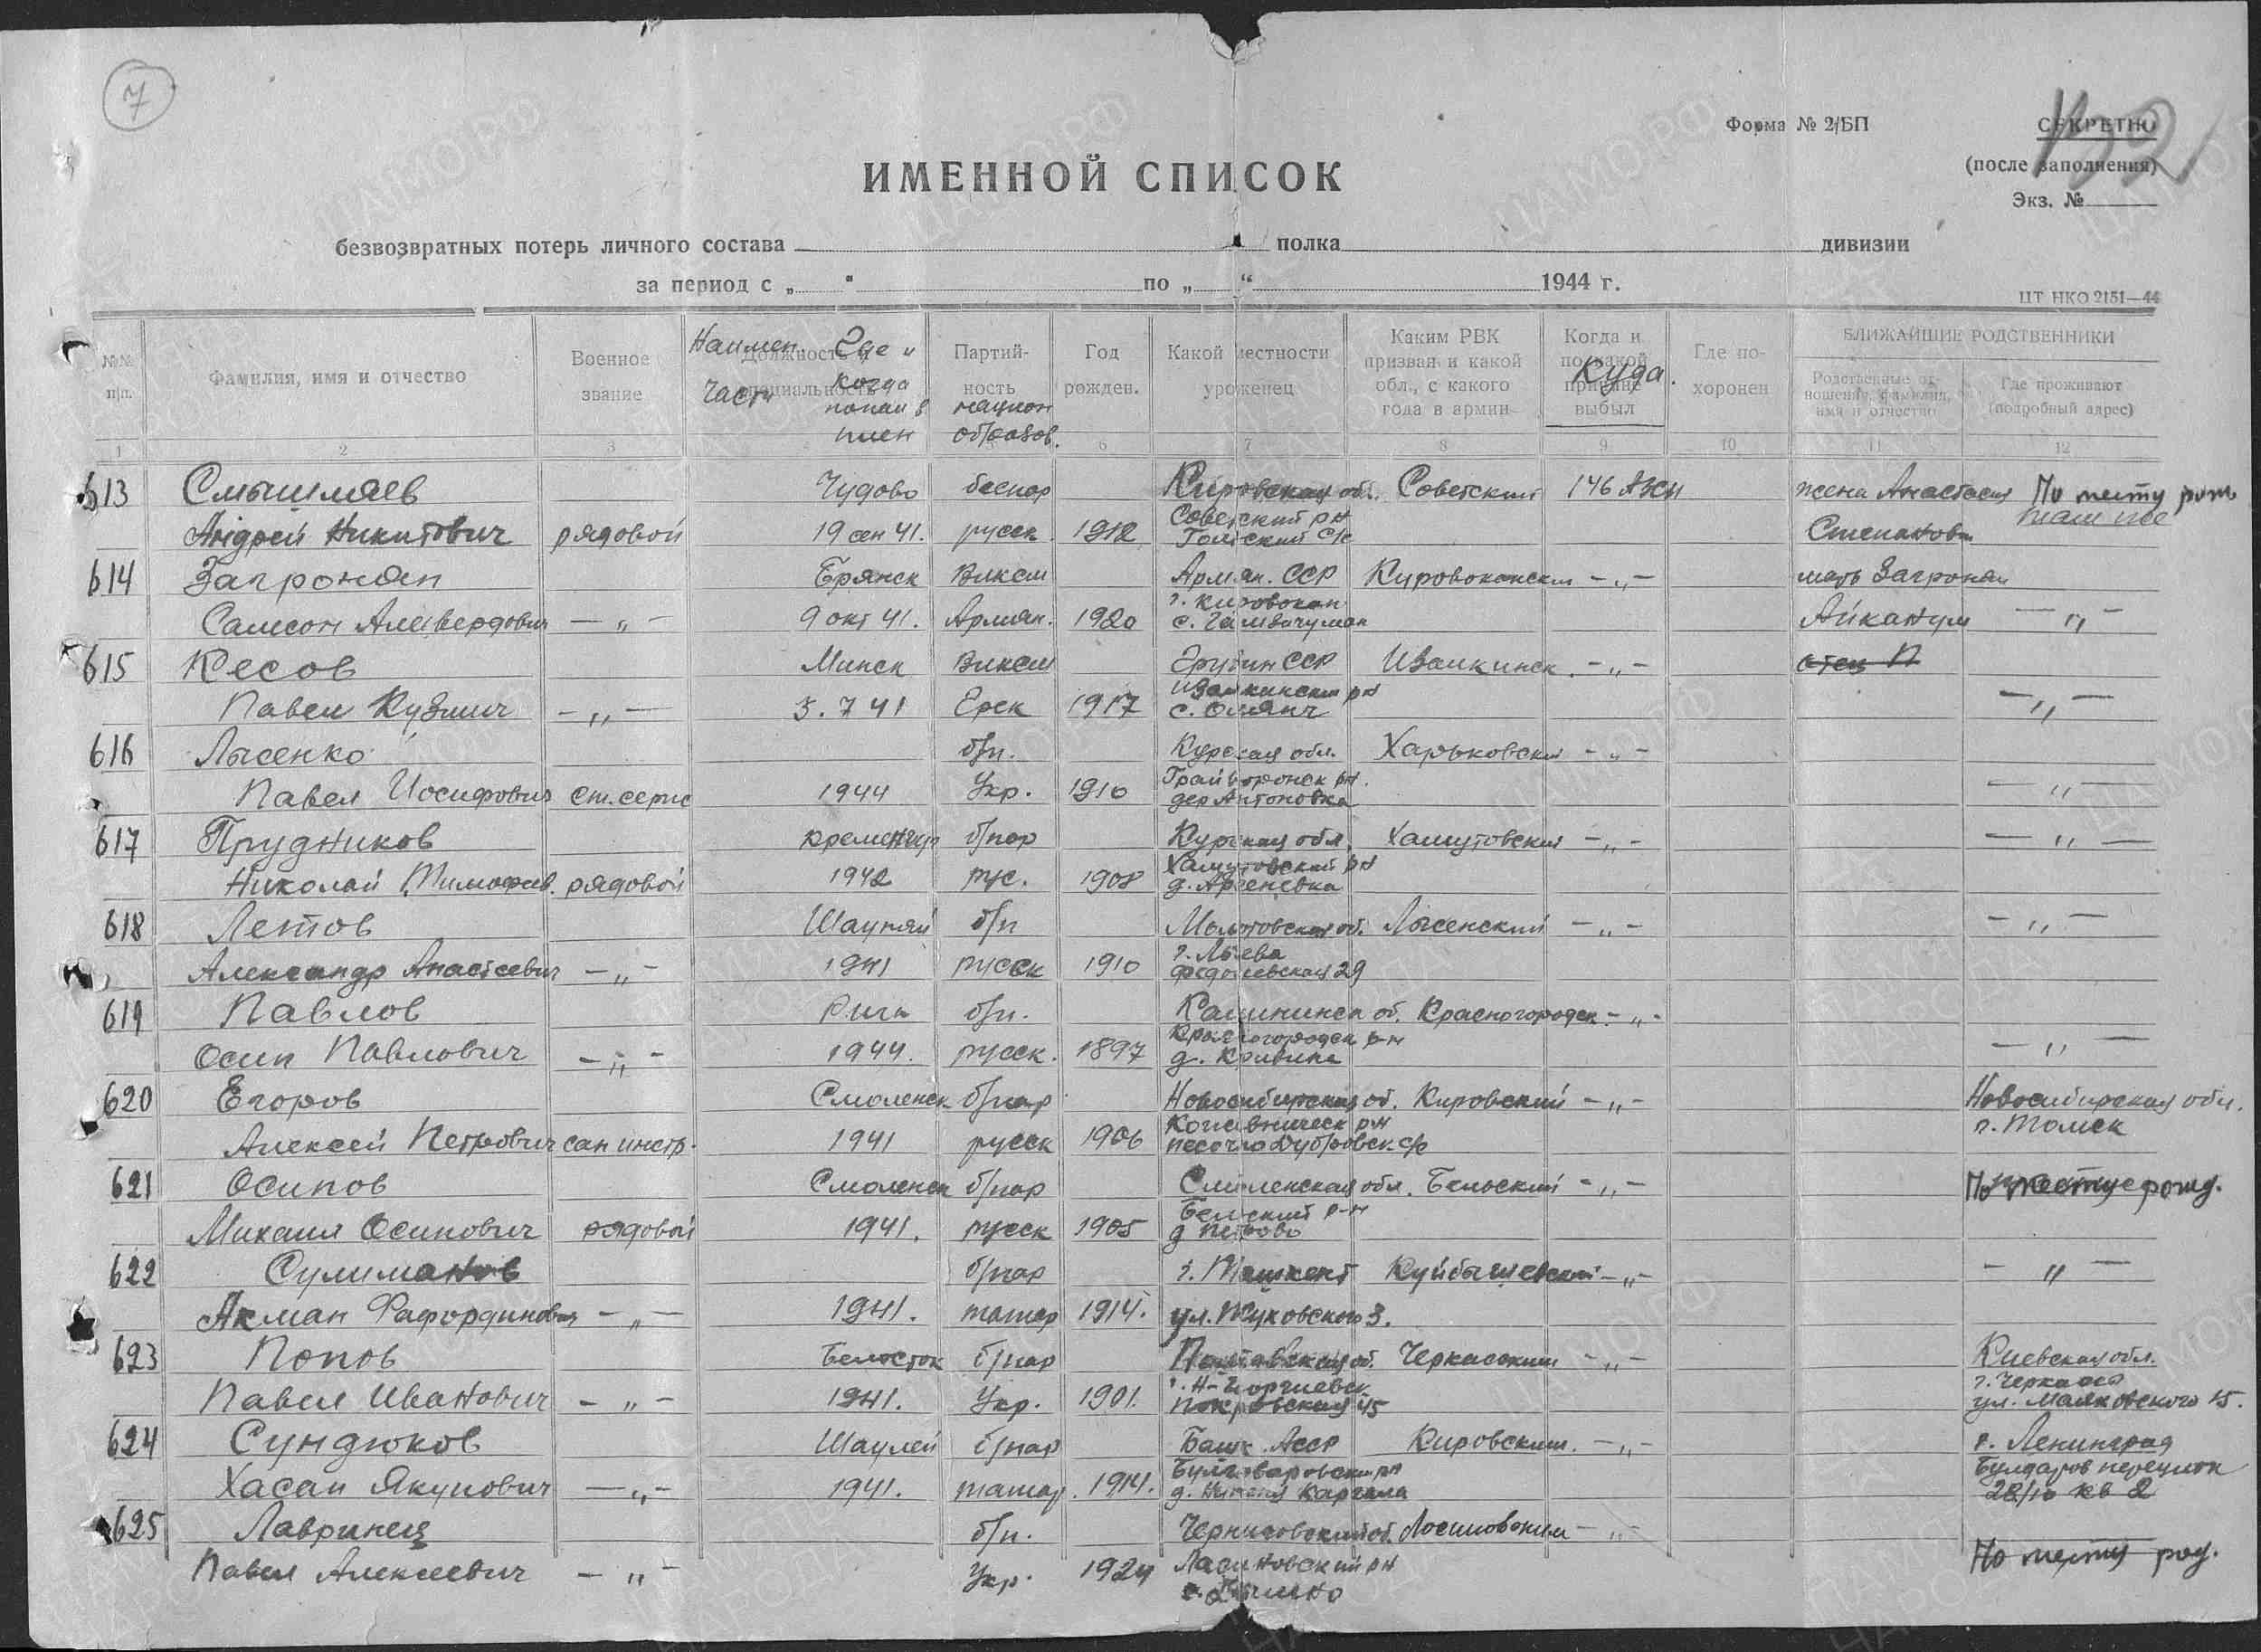 7
Форма № 2/БП
СЕКРЕТНО
(после заполнения)
Экз. №
ИМЕННОЙ СПИСОК
безвозвратных потерь личного состава полка дивизии
за период с „ “ по „ “ 1944 г.
ЦТ НКО 2151—44
№№ п/п.
Фамилия, имя и отчество
Военное звание
Должность специальность
Наимен Части
Где и когда попал в плен
Партий-ность
национ образов.
Год рожден.
Какой местности уроженец
Каким РВК призван и какой обл., с какого года в армии
Когда и по какой причине выбыл
Куда.
Где по-хоронен
БЛИЖАЙШИЕ РОДСТВЕННИКИ
Родственные от-ношения, фамилия, имя и отчество
Где проживают (подробный адрес)
1 2 3 6 7 8 9 10 11 12
613 Смышляев Чудово беспар Кировская об. Советский 146 Азсп жена Анастасия По месту рож
Советский рн там же
Андрей Никитович рядовой 19 сен 41. русск 1912 с/с Степановн
614 Загронян Брянск Влксм Армян. ССР Кировоканский – „ – мать Загронян
г. Кировокан
Самсон Алавердович – „ – 9 окт 41. Армян. 1920 Айканум – „ –
615 Кесов Минск Влксм Грузин ССР – „ – отец П
Павел Кузмич – „ – 5.7 41 Грек 1917 – „ –
616 Лысенко б/п. Курская обл. Харьковский – „ –
Грайворонск рн.
Павел Иосифович ст. серж 1944 Укр. 1910 дер Антоновка – „ –
617 Прудников Кременчуг б/пар Курская обл. Хамутовский – „ – – „ –
Хамутовский рн
Николай Тимофев. рядовой 1942 рус. 1908 д. Арсеневка
618 Летов б/п Молотовская об. Лысенский – „ – – „ –
г. Лысва
Александр – „ – 1941 русск 1910 29
619 Павлов Рига б/п. Калининск об. Красногородск. – „ –
Красногородск р-н
Осип Павлович – „ – 1944. русск. 1897 д. Кривина – „ –
620 Егоров Смоленск б/пар Новосибирская об. Кировский – „ – Новосибирская обл.
рн г. Томск
Алексей Петрович сан инстр. 1941 русск 1906
621 Осипов Смоленск б/пар Смоленская обл. Бельский – „ – По месту рожд.
Бельский р-н
Михаил Осипович рядовой 1941. русск 1905 д Петрово
622 Сулиманов б/пар г. Ташкент Куйбышевский – „ – – „ –
Акман Фафординович – „ – 1941. татар 1914. ул. Жуковского 3.
623 Попов Белосток б/пар Полтавская об. Черкасский – „ – Киевская обл.
г. Н-Георгиевск г. Черкасс
Павел Иванович – „ – 1941. Укр. 1901. Покровская 45 ул. Маяковского 15.
624 Сундюков Шаулей б/пар Башк. Асср Кировским. – „ – г. Ленинград
рн
Хасан Якупович – „ – 1941. татар. 1914. д. Нижния Каргала 28/10 кв 2
625 Лавринец б/п. Черниговский об. Лосиновским – „ –
Ласиновский рн По месту род.
Павел Алексеевич – „ – Укр. 1924